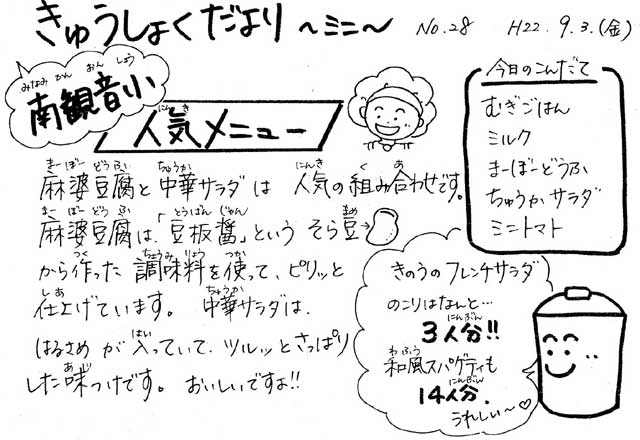 きゅうしょくだより ～ミニ～ No.28 H22.9.3.(金)
みなみかんおんしょう
南観音小
にんき
人気メニュー
まーぼーどうふ ちゅうか にんき く あ
麻婆豆腐と中華サラダは 人気の組み合わせです。
まーぼーどうふ とうばんじゃん まめ
麻婆豆腐は、「豆板醤」という そら豆→
つく ちょうみりょう つか
から作った 調味料を使って、ピリッと
しあ ちゅうか
仕上げています。 中華サラダは、
はい
はるさめ が 入っていて、ツルッとさっぱり
あじ
した味つけです。 おいしいですよ!!
今日のこんだて
むぎごはん
ミルク
まーぼーどうふ
ちゅうかサラダ
ミニトマト
きのうのフレンチサラダ
のこりはなんと…
にんぶん
3人分!!
わふう
和風スパゲティも
にんぶん
14人分.
うれしい～♡